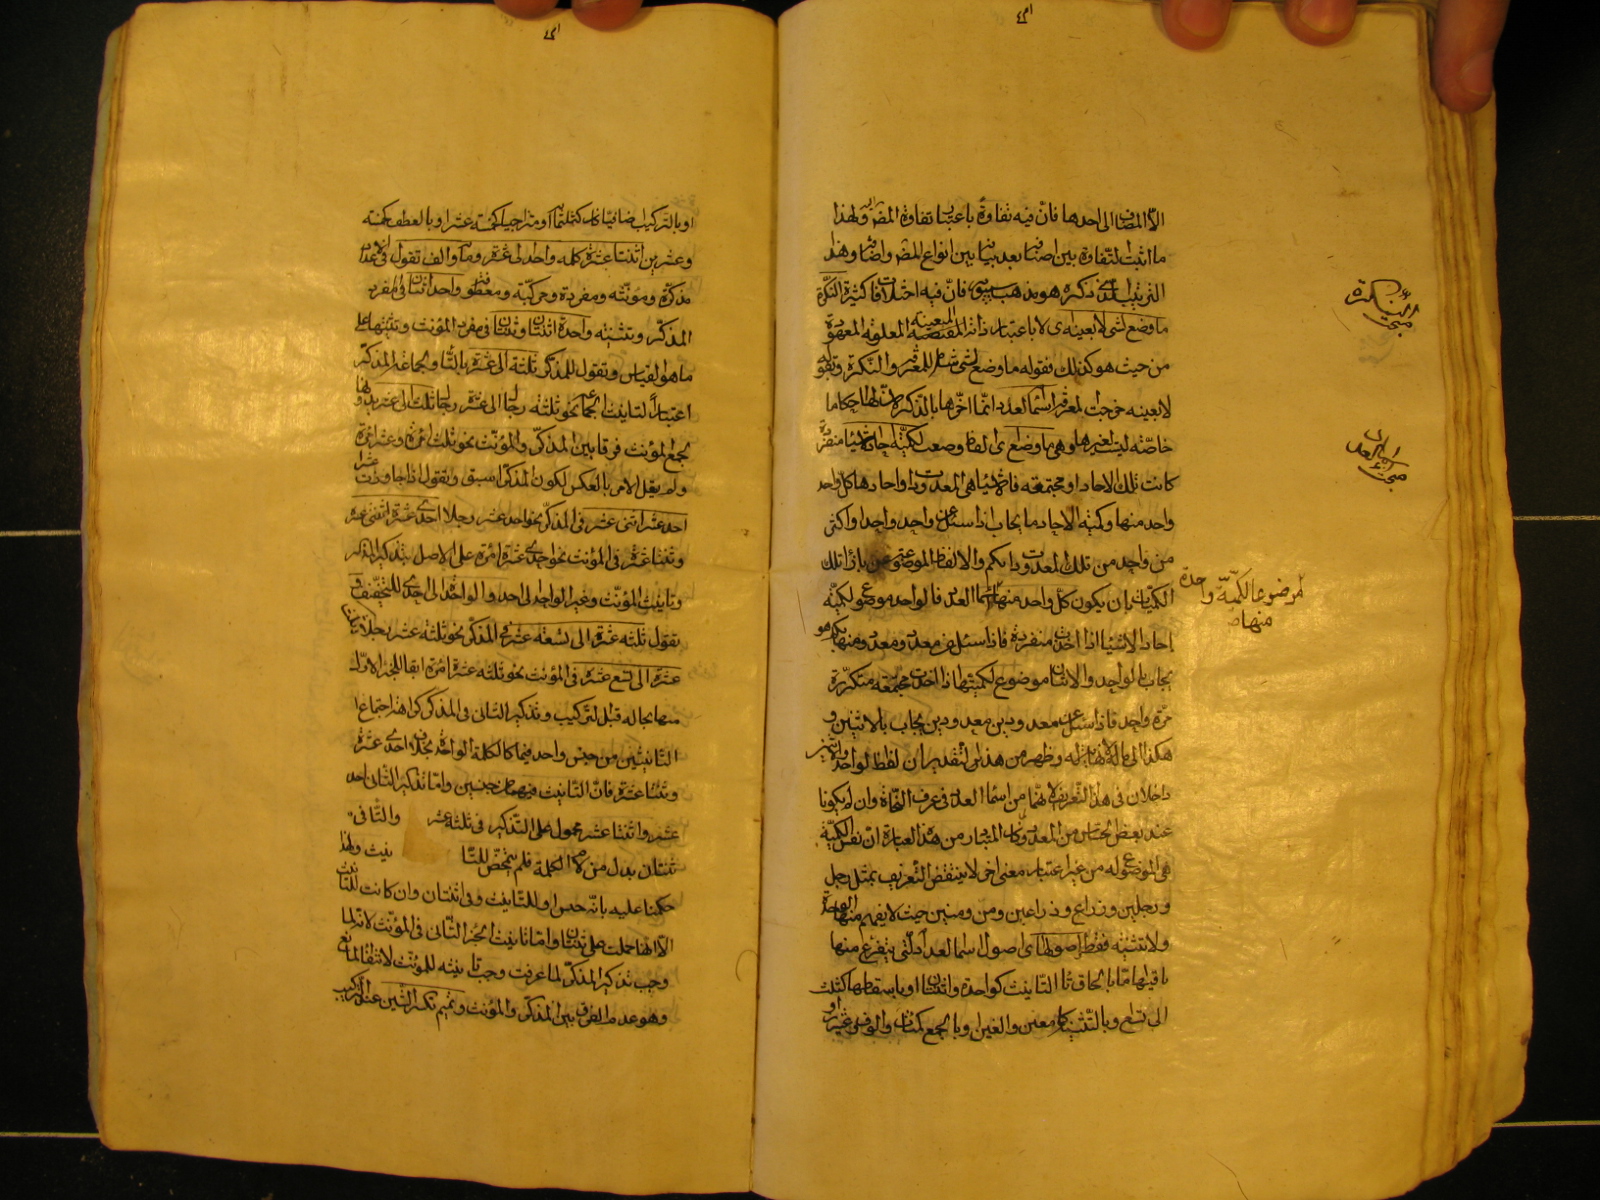 الا المضاف الى احدها فان فيه تفاوة باعتبار تفاوة المضمر ولهذا
ما اثبت التفاوة بين اصنافنا بعد بيانها بين انواع المضمر واضافه وهذا
الترتيب الذى ذكره هو مذهب سيبويه فان فيه اختلافات كثيرة النكرة
ما وضع لشئ لا بعينه اى لا باعتبار ذاته المعينة المعلومة المعهودة
من حيث هو كذلك فقوله ما وضع لشئ شامل للمعرفة والنكرة وبقوله
لا بعينه خرجت المعرفة اسماء العدد انما اخرها بالذكر لان لها احكاما
خاصة ليست لغيرها وهى ما وضع اى الفاظ وضعت لكمية احاد الاشياء منفردة
كانت تلك الاحاد او مجتمعة فالاشياء هى المعدودات واحادها كل واحد
واحد منها وكمية الاحاد ما يجاب اذا سئل عن واحد واحد واكثر
من واحد من تلك المعدودات بكم والالفاظ الموضوعة بازاء تلك
الكميات بان يكون كل واحد منها اسماء العدد فالواحد موضوع لكمية
احاد الاشياء اذا اخذت منفردة فاذا سئل عن معدود ومعدود منها بكم هو
يجاب بالواحد والاثنان موضوع لكميتها اذا اخذت مجتمعة متكررة
مرة واحد فاذا سئل عن معدودين معدودين يجاب بالاثنين و
هكذا الى ما لا نهاية له وظهر من هذا التقدير ان لفظ الواحد واثنين
داخلان فى هذا التعريف لانهما من اسماء العدد فى عرف النحاة وان لم يكونا
عند بعض الحساب من العدد ولما كان المتبادر من هذه العبارة ان نفس الكمية
هى الموضوع له من غير اعتبار معنى اخر لا ينتقض التعريف بمثل رجل
ورجلين وذراع وذراعين ومن ومنين حيث لا يفهم منها الوحدة
ولا اثنينية فقط اصولها اى اصول اسماء العدد التى يتفرع منها
باقيها اما بالحاق تاء التانيث كواحدة واثنتان او باسقاطها كثلث
الى تسع وبالتثنية كمائتين والفين او بالجمع كمئات والوف
مبحث النكرة
مبحث اسماء العدد
لموضوع الكمية واحدة
منها
او بالتركيب اضافيا كان كثلثمائة او مزجيا كخمسة عشر او بالعطف كخمسة
وعشرين اثنتا عشرة كلمة واحد الى عشرة ومائة والف تقول فى الاعداد
مذكره ومؤنثه ومفرده ومركبه ومعطوفه واحد اثنان فى المفرد
المذكر وتثنيته واحدة اثنتان وثنتان فى مفرد المؤنث وتثنيتها على
ما هو القياس وتقول للمذكر ثلثة الى عشرة بالتاء وبجماعة المذكر
اعتبارا لتانيث الجماعة نحو ثلثة رجال الى عشرة رجال ثلث الى عشر
بجمع المؤنث فرقا بين المذكر والمؤنث نحو ثلث امرأة وعشر امرأة
ولم يفعل الامر بالعكس لكون المذكر اسبق وتقول اذا جاوزت
احد عشر اثنى عشر فى المذكر نحو احد عشر رجلا احدى عشرة اثنتى عشرة
وثنتا عشرة فى المؤنث نحو احدى عشرة امرأة على الاصل بتذكير المذكر
وتانيث المؤنث وغير الواحد الى احد والواحدة الى احدى للتخفيف و
تقول ثلثة عشر الى تسعة عشر فى المذكر نحو ثلثة عشر رجلا
عشرة الى تسع عشرة فى المؤنث نحو ثلث عشرة امرأة ابقاء للجزء الاول
منها بحاله قبل التركيب وتذكير الثانى فى المذكر كراهة اجتماع
التانيثين من جنس واحد فيما كالكلمة الواحدة بخلاف احدى عشرة
وثنتا عشرة فان التانيث فيهما من جنسين واما تذكير الثانى احد
عشر واثنا عشر محمول على التذكير فى ثلثة عشر والتاء فى
ثنتان بدل من لام الكلمة فلم يتمحض للتا نيث ولهذا
حكمنا عليه بانه حسوا وللتانيث وفى اثنتان وان كانت للتانيث
الا انها حملت على ثنتان واما تانيث الجزء الثانى فى المؤنث لانه لما
وجب تذكير المذكر لما عرفت وجب تانيثه للمؤنث لانتفاء المانع
وهو عدم الفرق بين المذكر والمؤنث وتميم تكسر الشين عند التركيب